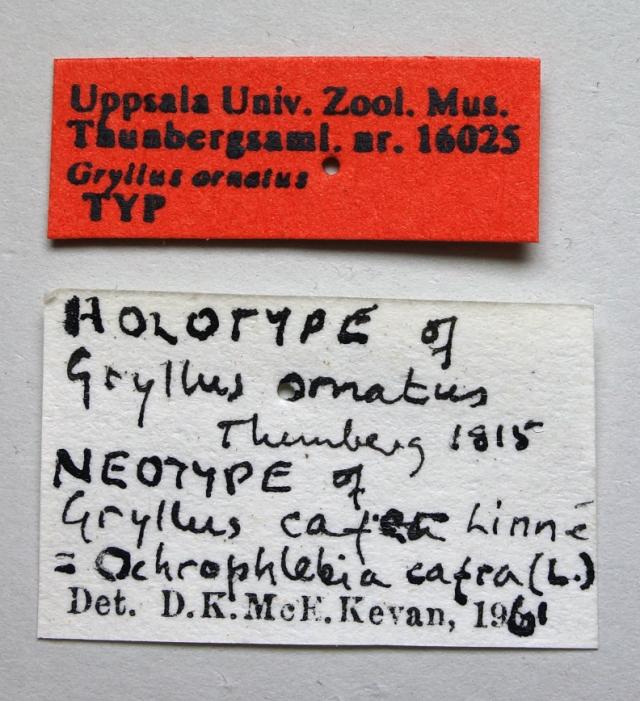 Uppsala Univ. Zool. Mus.
Thunbergsaml. nr. 16025
Gryllus ornatus
TYP
HOLOTYPE of
Gryllus ornatus
Thunberg 1815
NEOTYPE of
Gryllus cafer Linné
= Ochrophlebia cafra (L.)
Det. D.K. McE. Kevan, 1961